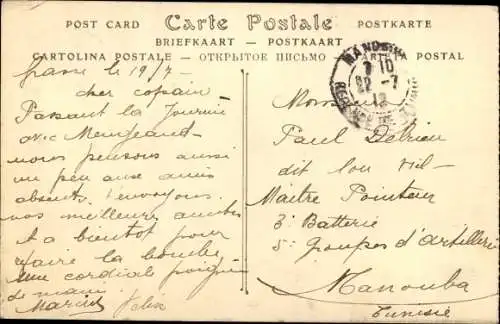 POST CARD Carte Postale POSTKARTE
BRIEFKAART — POSTKAART
CARTOLINA POSTALE — ОТКРЫТОЕ ПИСЬМО — CARTA POSTAL
MANOUBA
7 10
22 -7
le 19/7 -
cher copain
Passant la journée
avec
nous pensons aussi
un peu aux amis
absents. t'envoyons
nos meilleures
et a bientôt pour
refaire la bombe
une cordial poignée
de main
Marius Felix
Monsieur
Paul Delrieu
dit
Maitre Pointeur
3e Batterie
5e groupes d'artillerie
Manouba
Tunisie